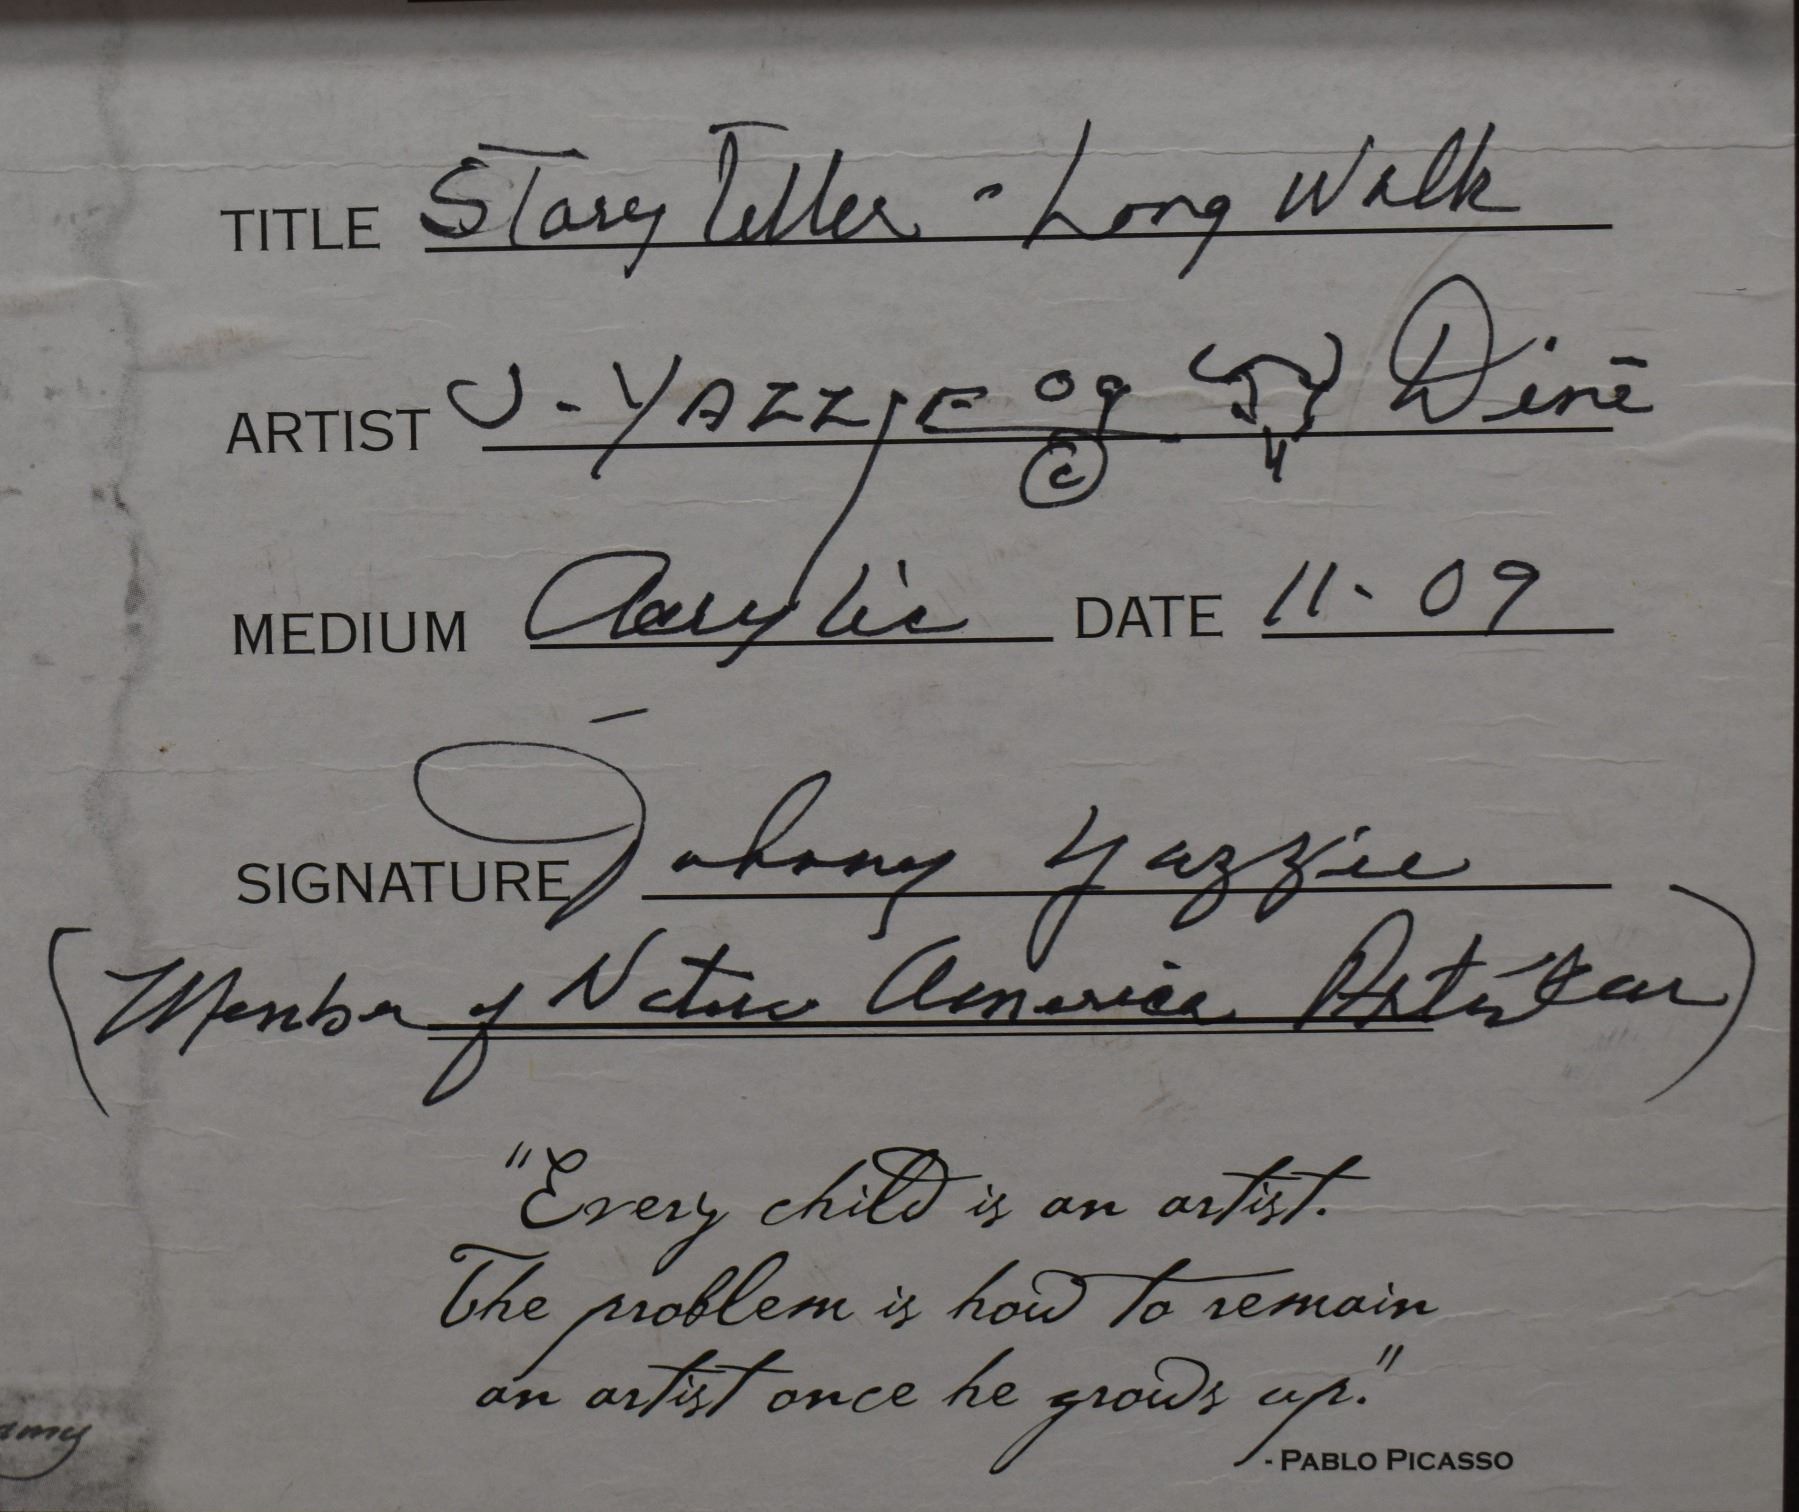 TITLE Story Teller - Long Walk
ARTIST J-YAZZIE 09 Diné
©
MEDIUM Acrylic DATE 11-09
SIGNATURE Johnny Yazzie
(Member of Native America
"Every child is an artist.
The problem is how to remain
an artist once he grows up."
- PABLO PICASSO